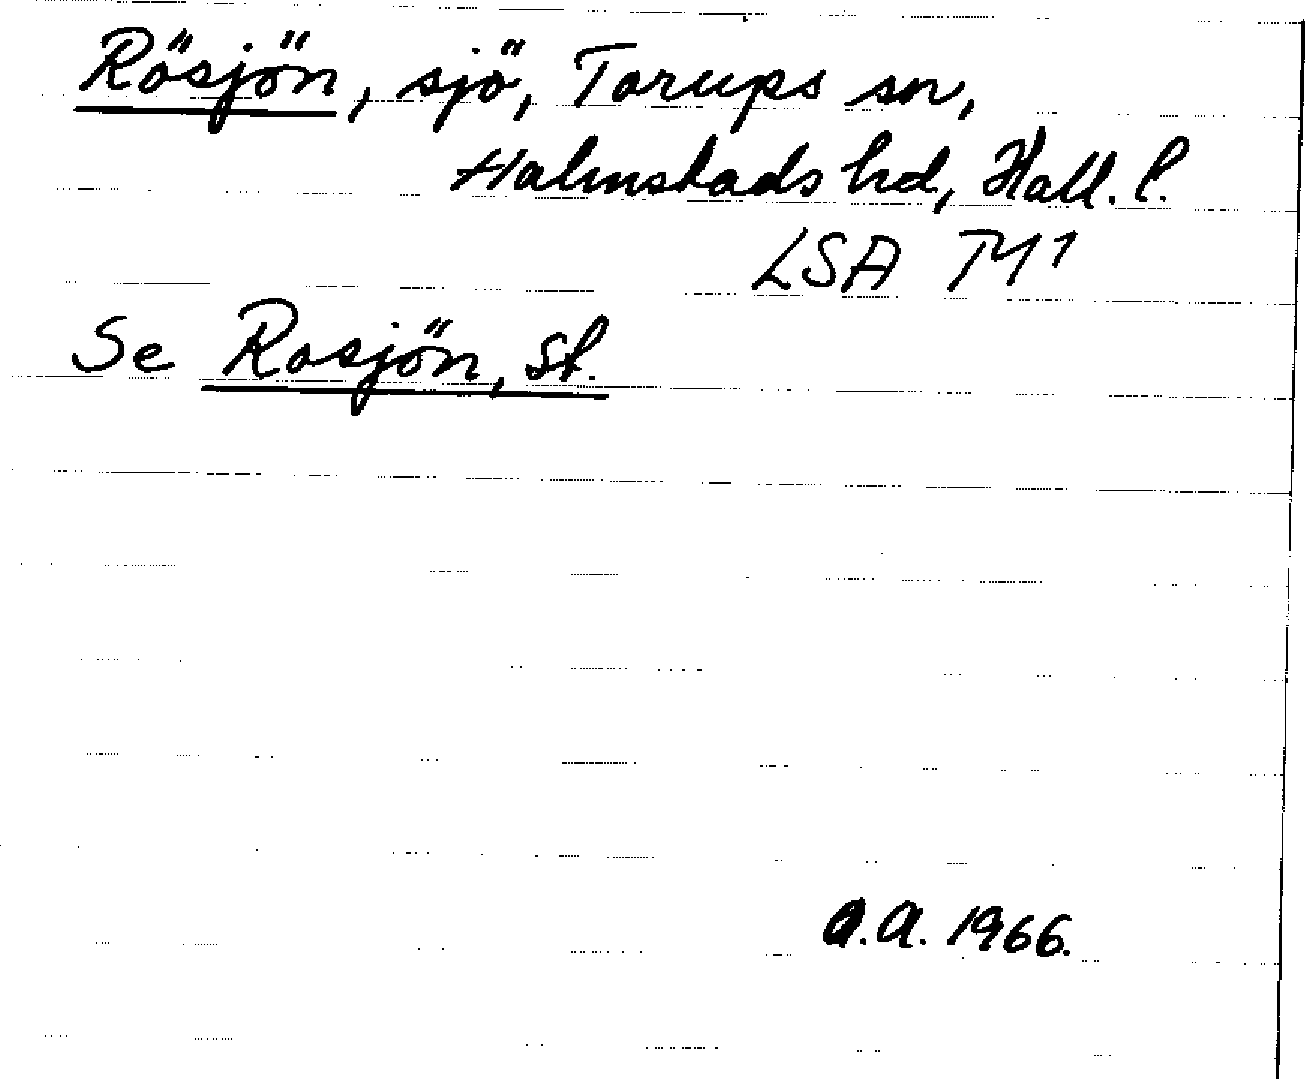 Rösjön, sjö, Torups sn,
Halmstads hd, Hall. l.
LSA TY1
Se Rosjön, St.
a.a. 1966.